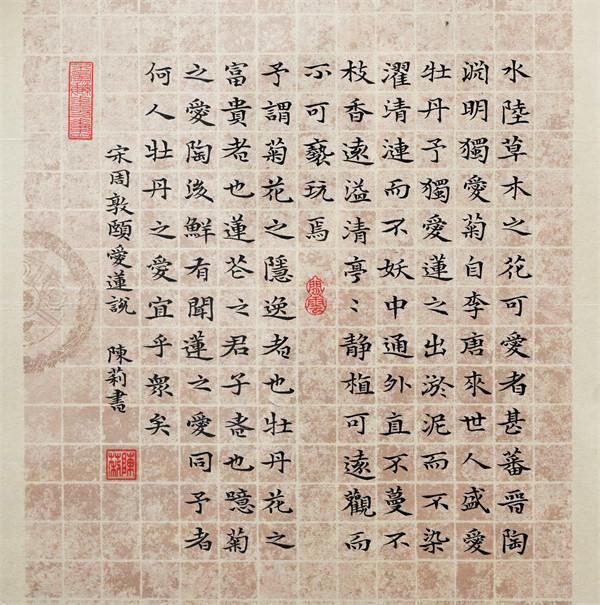 水陸草木之花可愛者甚蕃晉陶
淵明獨愛菊自李唐來世人盛愛
牡丹予獨愛蓮之出淤泥而不染
濯清漣而不妖中通外直不蔓不
枝香遠溢清亭〻静植可遠觀而
不可褻玩焉
予謂菊花之隱逸者也牡丹花之
富貴者也蓮花之君子者也噫菊
之愛陶後鮮有聞蓮之愛同予者
何人牡丹之愛宜乎衆矣
宋周敦頤愛蓮說 陳莉書
陳莉